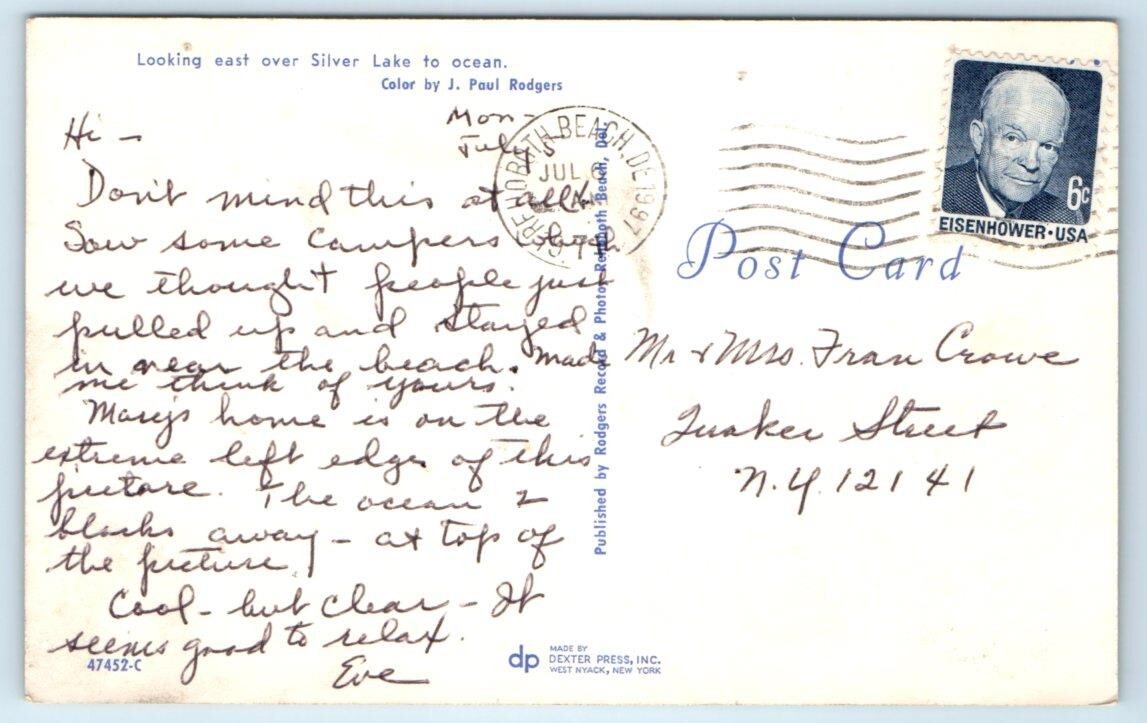 Looking east over Silver Lake to ocean.
Color by J. Paul Rodgers
Mon-
July 5
Hi -
Don't mind this at all.
Saw some campers
we thought people just
pulled up and stayed
in near the beach. Made
me think of yours.
Mary's home is on the
extreme left edge of this
picture. The ocean 2
blocks away - at top of
the picture
Cool - but clear - It
seems good to relax.
Eve
47452-C
Published by Rodgers Record & Photo, Rehoboth Beach, Del.
dp
MADE BY
DEXTER PRESS, INC.
WEST NYACK, NEW YORK
REHOBOTH BEACH, DE 1997
JUL
6c
EISENHOWER·USA
Post Card
Mr & Mrs. Fran Crowe
Quaker Street
N.Y. 12141